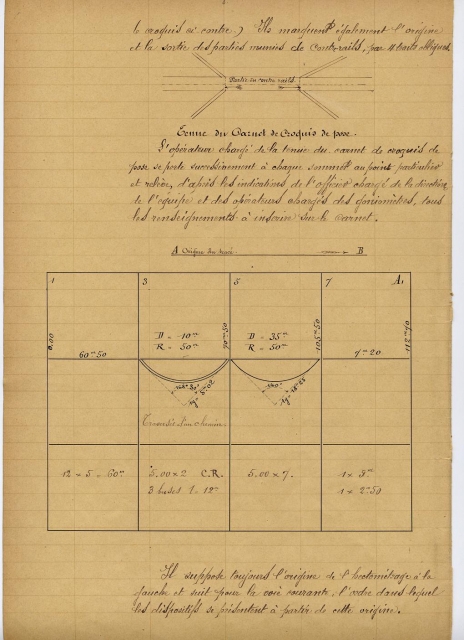 le croquis ci contre.) Ils marquent également l'origine
et la sortie des parties munies de Contrails, par 4 traits obliques.
Partie en contre rails
Tenue du Carnet de Croquis de pose.
L'opérateur chargé de la tenue du carnet de croquis de
pose se porte successivement à chaque sommet au point particulier
et relève, d'après les indications, de l'officier chargé de la direction
de l'équipe et des opérateurs chargés des goniomètres, tous
les renseignements à inscrire sur le carnet.
A Origine du tracé B
1 3 5 7 A1
0,00 70m50 105m50 112m70
D = 10m D = 35m
R = 50m R = 50m
60m50 7m20
Traversée d'un chemin
12 × 5 = 60m 5.00 × 2 C.R. 5.00 × 7. 1 × 5m
1 × 2m50
Il suppose toujours l'origine de l'hectométrage à la
gauche et suit pour la voie courante, l'ordre dans lequel
les dispositifs se présentent à partir de cette origine.